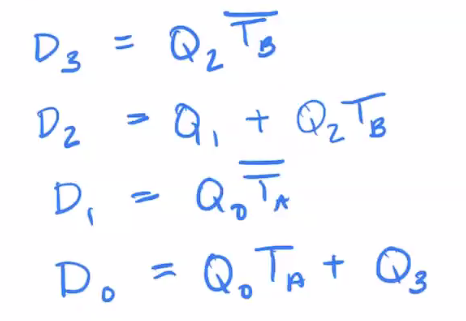 D₃ = Q₂ T̅_B
D₂ = Q₁ + Q₂ T_B
D₁ = Q₀ T̅_A
D₀ = Q₀ T_A + Q₃